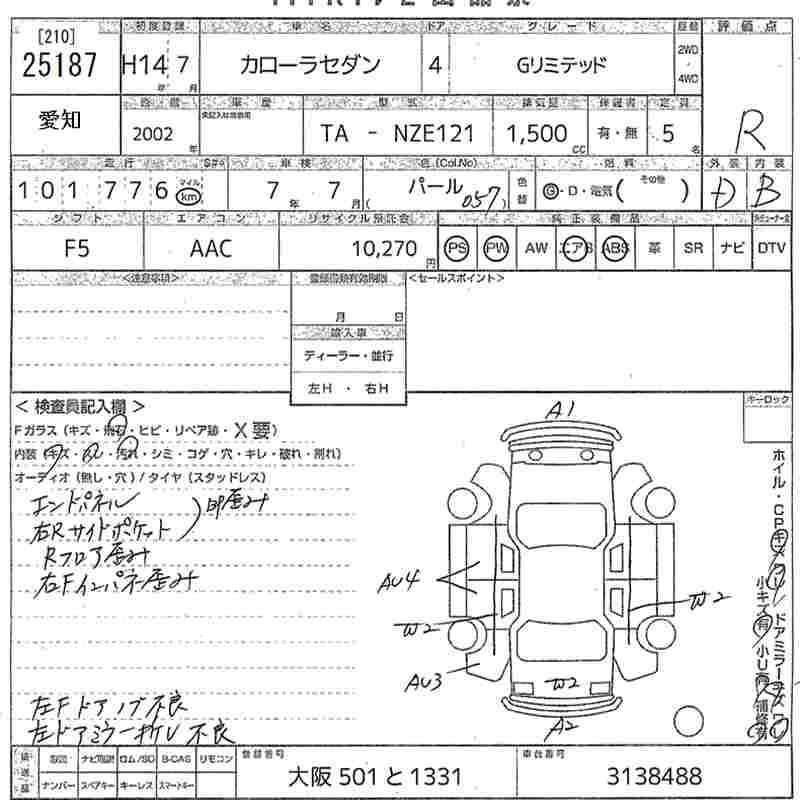 [210]
25187
初度登録
車名
ドア
グレード
評価点
H14年 7月
カローラセダン
4
Gリミテッド
2WD
4WD
愛知
2002年
型式
排気量
保証書
定員
TA - NZE121
1,500cc
有・無
5名
R
走行
車検
色(Col.No)
燃料
外装
内装
101776 マイル km
7年 7月
パール
057
色替
G・D・電気( その他 )
D
B
シフト
エアコン
リサイクル預託金
純正装備品
F5
AAC
10,270円
PS
PW
AW
エアB
ABS
革
SR
ナビ
DTV
<注意事項>
登録書類有効期限
<セールスポイント>
月 日
輸入車
ディーラー・並行
左H ・ 右H
キーロック
< 検査員記入欄 >
Fガラス (キズ・飛石・ヒビ・リペア跡・X要)
内装 (キズ・スレ・汚れ・シミ・コゲ・穴・キレ・破れ・割れ)
オーディオ (無し・穴) / タイヤ (スタッドレス)
エンドパネル
右Rサイドポケット
凹歪み
Rフロア歪み
右Fインパネ歪み
左Fドアノブ不良
左ドアミラーキレ不良
A1
AU4
W2
W2
AU3
W2
A2
ホイル・CPキズ
ドアミラーキズ
小キズ有
小U有
補修有
ナビ取説
ロム/SD
B-CAS
リモコン
ナンバー
スペアキー
キーレス
スマートキー
登録番号
大阪 501 と 1331
車台番号
3138488